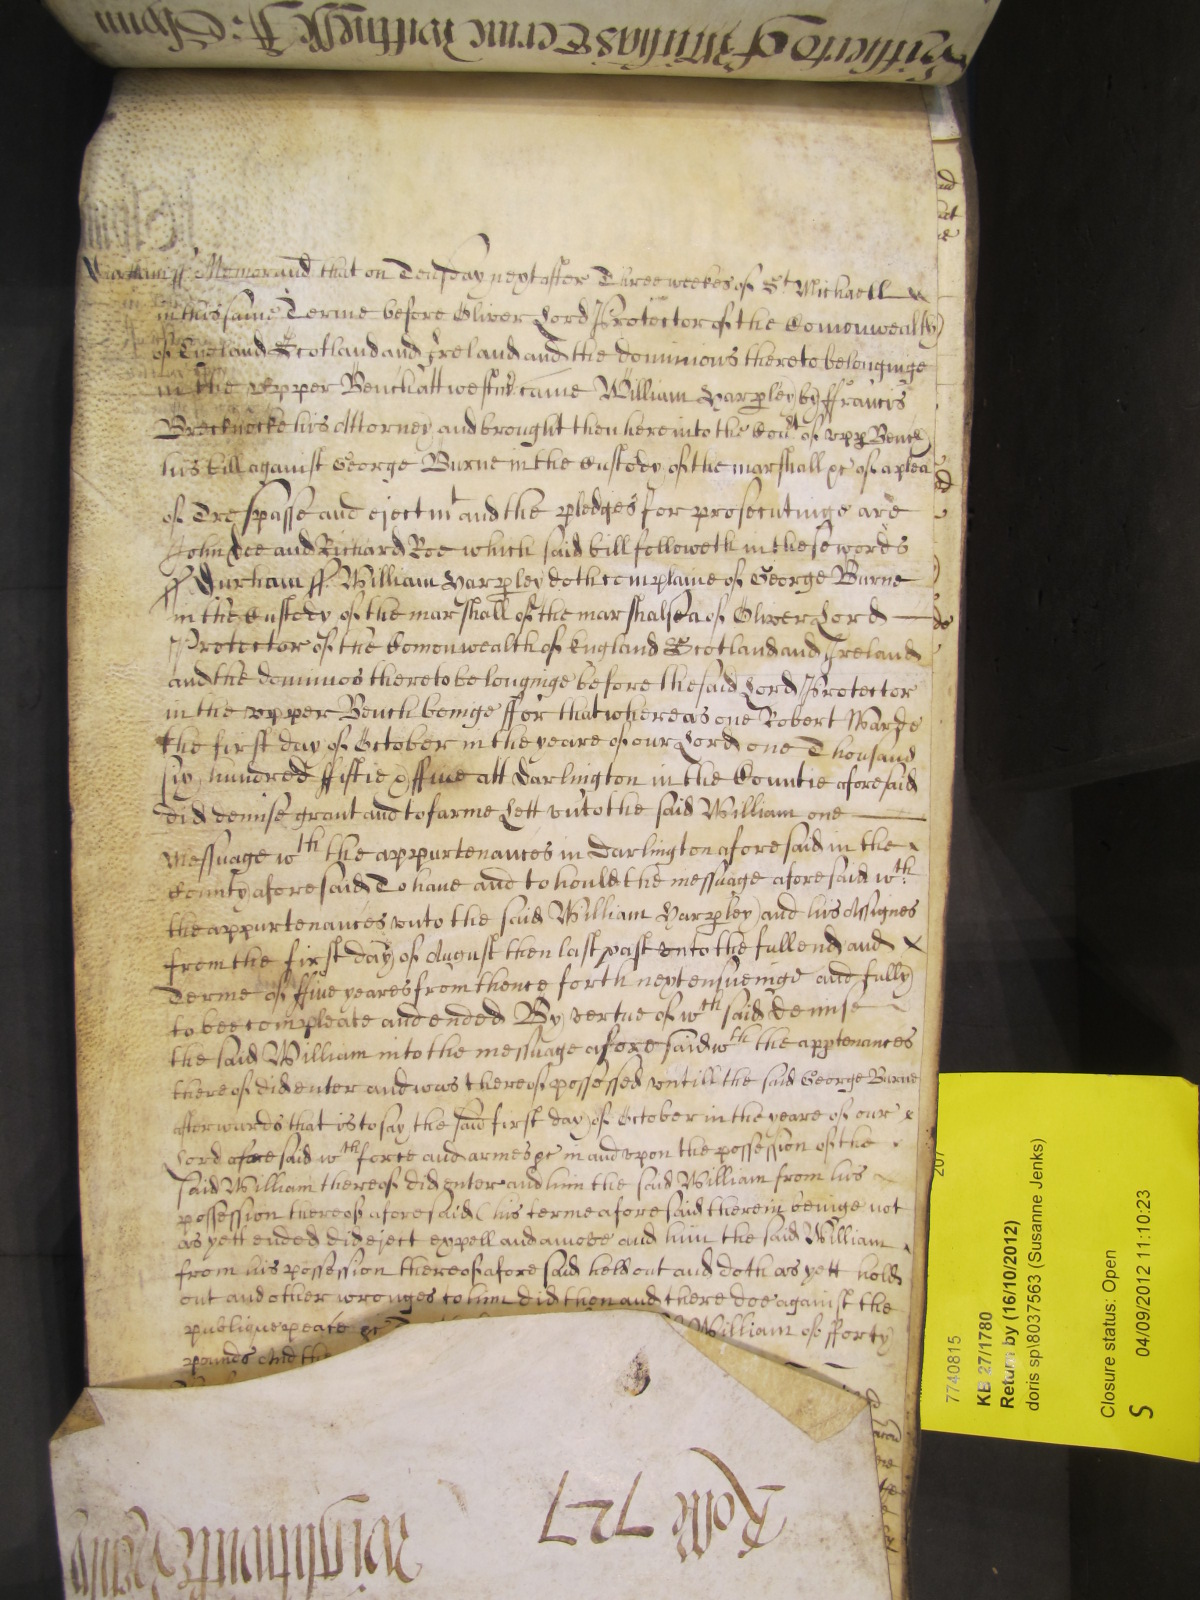 Hitherto of Michas Terme Wittnesse R: Glynn
Durham ss Memorand that on Teusday next after Three weekes of St Michaell
in this same Terme before Oliver Lord Protector of the Comonwealth
of England Scotland and Ireland and the dominions thereto belonginge
in the vpper Bench att westmr came William Yarpley by ffrancis
Brecknocke his Attorney and brought then here into the Court of vpp Bench
his bill against George Burne in the Custody of the marshall &c of a plea
of Trespasse and ejectmt and the pledges for prosecutinge are
John Doe and Richard Roe which said bill followeth in these words
ss Durham ss William Yarpley doth complaine of George Burne
in the Custody of the marshall of the marshalsea of Oliver Lord
Protector of the Comonwealth of England Scotland and Ireland
and the dominios thereto belonginge before the said Lord Protector
in the vpper Bench beinge ffor that whereas one Robert Warde
the first day of October in the yeare of our Lord one Thousand
six hundred ffiftie & ffive att Darlington in the Countie aforesaid
did demise grant and to farme Lett vnto the said William one
Messuage wth the appurtenances in Darlington aforesaid in the
County aforesaid To have and to hould the messuage aforesaid wth
the appurtenances vnto the said William Yarpley and his Assignes
from the first day of August then last past vnto the full end and
Terme of ffive yeares from thence forth next ensueinge and fully
to bee compleate and ended By vertue of wth said demise
the said William into the messuage aforesaid wth the apptenances
thereof did enter and was thereof possessed vntill the said George Burne
afterwards that is to say the said first day of October in the yeare of our
Lord aforesaid wth force and armes &c in and vpon the possession of the
said William thereof did enter and him the said William from his
possession thereof aforesaid (his terme aforesaid therein beinge not
as yett ended did eject expell and amove and him the said William
from his possession thereof aforesaid held out and doth as yett hold
out and other wronges to him did then and there doe against the
publique peace &c
William of fforty
pounds And the
Rolle 727
7740815
KB 27/1780
Return by (16/10/2012)
doris sp\8037563 (Susanne Jenks)
Closure status: Open
S 04/09/2012 11:10:23